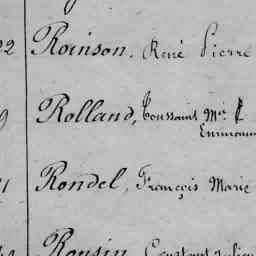 22 Roinson, René Pierre
Rolland, Toussaint Mie
Emmanu
Rondel, François Marie
Rousin, Constant Julien